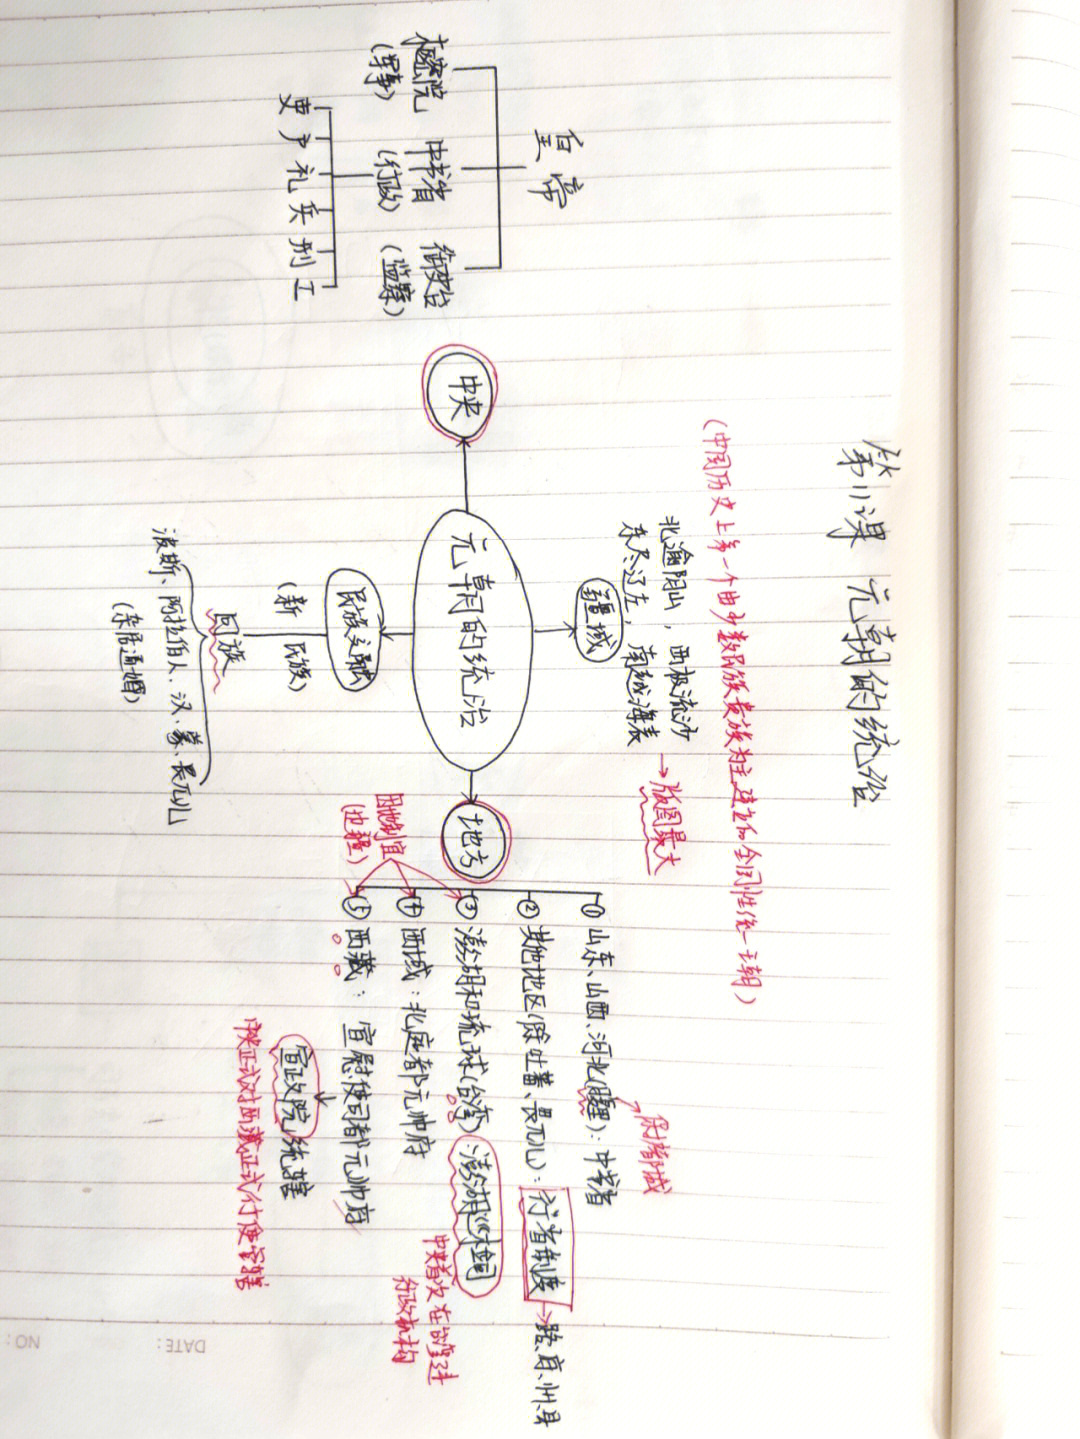 第11课 元朝的统治
(中国历史上第一个由少数民族贵族为主建立的全国性统一王朝)
北逾阴山，西极流沙
东尽辽左，南越海表
→版图最大
疆域
元朝的统治
中央
皇帝
枢密院 中书省 御史台
(军事) (行政) (监察)
吏 户 礼 兵 刑 工
民族交融
(新 民族)
回族
波斯、阿拉伯人、汉、蒙、畏兀儿
(杂居通婚)
地方
因地制宜
(边疆)
①山东、山西、河北(腹里)：中书省
②其他地区(除吐蕃、畏兀儿)：行省制度→路、府、州、县
③澎湖和琉球(台湾)：澎湖巡检司
中央首次在台湾建
行政机构
④西域：北庭都元帅府
⑤西藏：宣慰使司都元帅府
宣政院统辖
中央正式对西藏正式行使管辖
DATE:
NO: